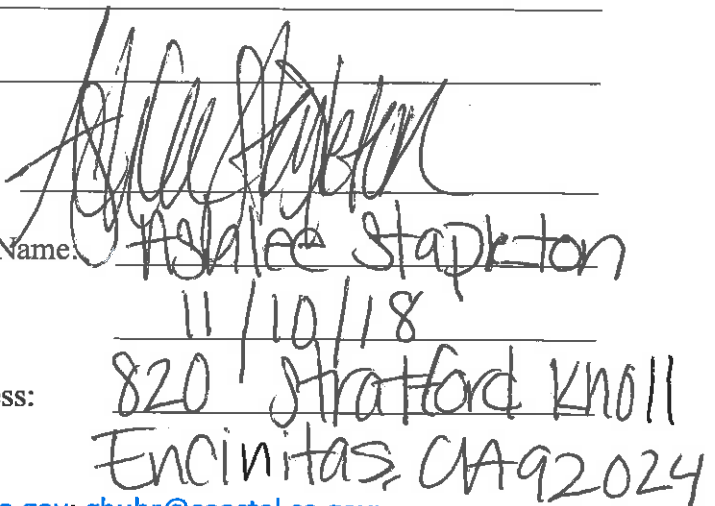 Name: Ashlee Stapleton
11/10/18
ess: 820 Stratford Knoll
Encinitas, CA 92024